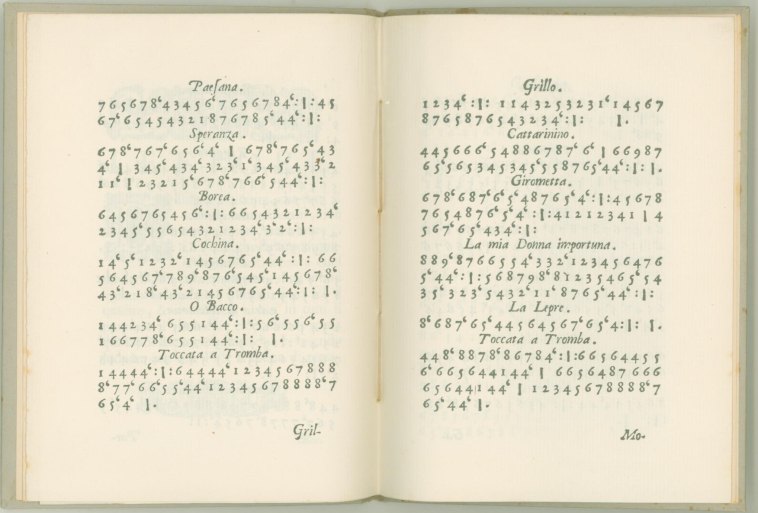 Paeſana.
7 6 5 6 7 8⁶ 4 3 4 5 6⁶ 7 6 5 6 7 8 4⁶ :|: 4 5
6 7⁶ 6 5 4 5 4 3 2 1 8 7 6 7 8 5⁶ 4 4⁶ :|:
Speranza.
6 7 8⁶ 7 6 7⁶ 6 5 6⁶ 4⁶ | 6 7 8⁶ 7 6 5⁶ 4 3
4⁶ | 3 4 5⁶ 4 3 4⁶ 3 2 3⁶ 1⁶ 3 4 5⁶ 4 3 3⁶ 2
1 1⁶ | 2 3 2 1 5⁶ 6 7 8⁶ 7 6 6⁶ 5 4 4⁶ :|:
Borea.
6 4 5 6 7 6 5 4 5 6⁶ :|: 6 6 5 4 3 2 1 2 3 4⁶
2 3 4 5⁶ 5 5 6 5 4 3 2 1 2 3 4⁶ 3⁶ 2⁶ :|:
Cochina.
1 4⁶ 5⁶ 1 2 3 2⁶ 1 4 5 6 7 6 5⁶ 4 4⁶ :|: 6 6
5 6 4 5 6 7⁶ 7 8 9⁶ 8 7⁶ 6 5⁶ 4 5⁶ 1 4 5 6 7 8⁶
4 3⁶ 2 1 8⁶ 4 3⁶ 2 1 4 5 6 7 6 5⁶ 4 4⁶ :|: |.
O Bacco.
1 4 4 2 3 4⁶ 6 5 5 1 4 4⁶ :|: 5 6⁶ 5 5 6⁶ 5 5
1 6 6 7 7 8⁶ 6 5 5 1 4 4⁶ :|: |.
Toccata a Tromba.
1 4 4 4 4⁶ :|: 6 4 4 4 4⁶ 1 2 3 4 5 6 7 8 8 8
8⁶ 7 7⁶ 6 6⁶ 5 5⁶ 4 4⁶ 1 2 3 4 5 6 7 8 8 8 8⁶ 7
6 5⁶ 4⁶ |.
Gril-
Grillo.
1 2 3 4⁶ :|: 1 1 4 3 2 5 3 2 3 1⁶ 1⁶ 4 5 6 7
8 7 6 5 8 7 6 5 4 3 2 3 4⁶ :|: |.
Cattarinino.
4 4 5 6 6 6⁶ 5 4 8 8 6 7 8⁶ 6⁶ | 6 6 9 8 7
6 5⁶ 5 6 5 3 4 5 3 4 5⁶ 5 5 8 7 6 5⁶ 4 4⁶ :|: |.
Girometta.
6 7 8⁶ 6 8⁶ 7 6⁶ 5⁶ 4 8 7 6 5⁶ 4⁶ :|: 4 5 6 7 8
7 6 5 4 8 7 6⁶ 5⁶ 4⁶ :|: 4 1 2 1 2 3 4 1 | 4
5 6 7⁶ 6 5⁶ 4 3 4⁶ :|:
La mia Donna importuna.
8 8 9⁶ 8 7 6 6 5 5 4⁶ 3 3 2⁶ 1 2 3 4 5 6 4 7 6
5⁶ 4 4⁶ :|: 5 6 8 7 9 8⁶ 8 1 2 3 4 5 6⁶ 5⁶ 4
3 5⁶ 3 2 3⁶ 5 4 3 2⁶ 1 1⁶ 8 7 6 5⁶ 4 4⁶ :|:
La Lepre.
8⁶ 6 8⁶ 7 6⁶ 4 4 5 6 4 5 6 7⁶ 6 5⁶ 4 :|: |.
Toccata a Tromba.
4 4 8⁶ 8 8 7 8⁶ 8 6 7 8 4⁶ :|: 6 6 5 6 4 4 5 5
6⁶ 6 6 5 6 4 4 1 4 4⁶ | 6 6 5 6 4 8 7 6 6 6
6 5 6 4 4 1 4 4⁶ | 1 2 3 4 5 6 7 8 8 8 8⁶ 7
6 5⁶ 4 4⁶ |.
Mo-